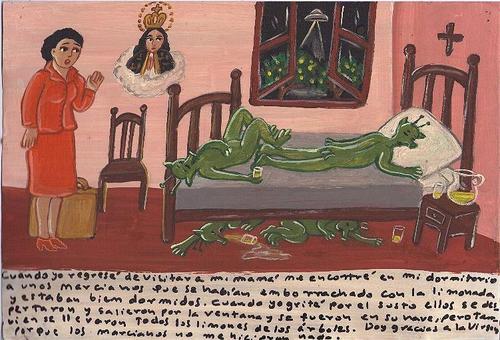 Cuando yo regresé de visitar a mi mamá me encontré en mi dormitorio
a unos marcianos que se habían emborrachado con la limonada
y estaban bien dormidos. Cuando yo grité por el susto ellos se des
pertaron y salieron por la ventana y se fueron en su nave, pero tam
bién se llevaron todos los limones de los árboles. Doy gracias a la Virgen
porque los marcianos no me hicieron nada.